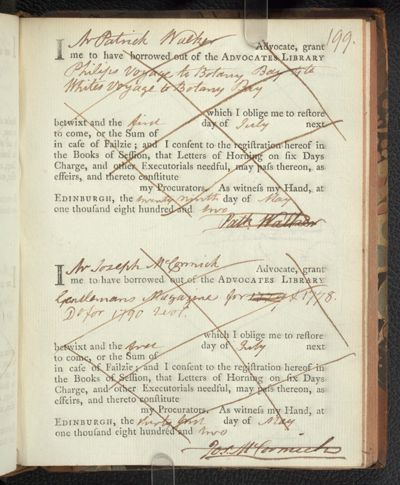 199.
I Mr Patrick Walker Advocate, grant
me to have borrowed out of the ADVOCATES LIBRARY
Philips Voyage to Botany Bay 4to
Whites Voyage to Botany Bay
which I oblige me to reſtore
betwixt and the first day of July next
to come, or the Sum of
in caſe of Failzie; and I conſent to the regiſtration hereof in
the Books of Seſſion, that Letters of Horning on ſix Days
Charge, and other Executorials needful, may paſs thereon, as
effeirs, and thereto conſtitute
my Procurators. As witneſs my Hand, at
EDINBURGH, the twenty ninth day of May
one thouſand eight hundred and two
Patk Walker
I Mr Joseph McCormick Advocate, grant
me to have borrowed out of the ADVOCATES LIBRARY
Gentlemans Magazine for & 1778.
Do for 1790 2 vol.
which I oblige me to reſtore
betwixt and the first day of July next
to come, or the Sum of
in caſe of Failzie; and I conſent to the regiſtration hereof in
the Books of Seſſion, that Letters of Horning on ſix Days
Charge, and other Executorials needful, may paſs thereon, as
effeirs, and thereto conſtitute
my Procurators. As witneſs my Hand, at
EDINBURGH, the thirty first day of May
one thouſand eight hundred and two
Jos. McCormick